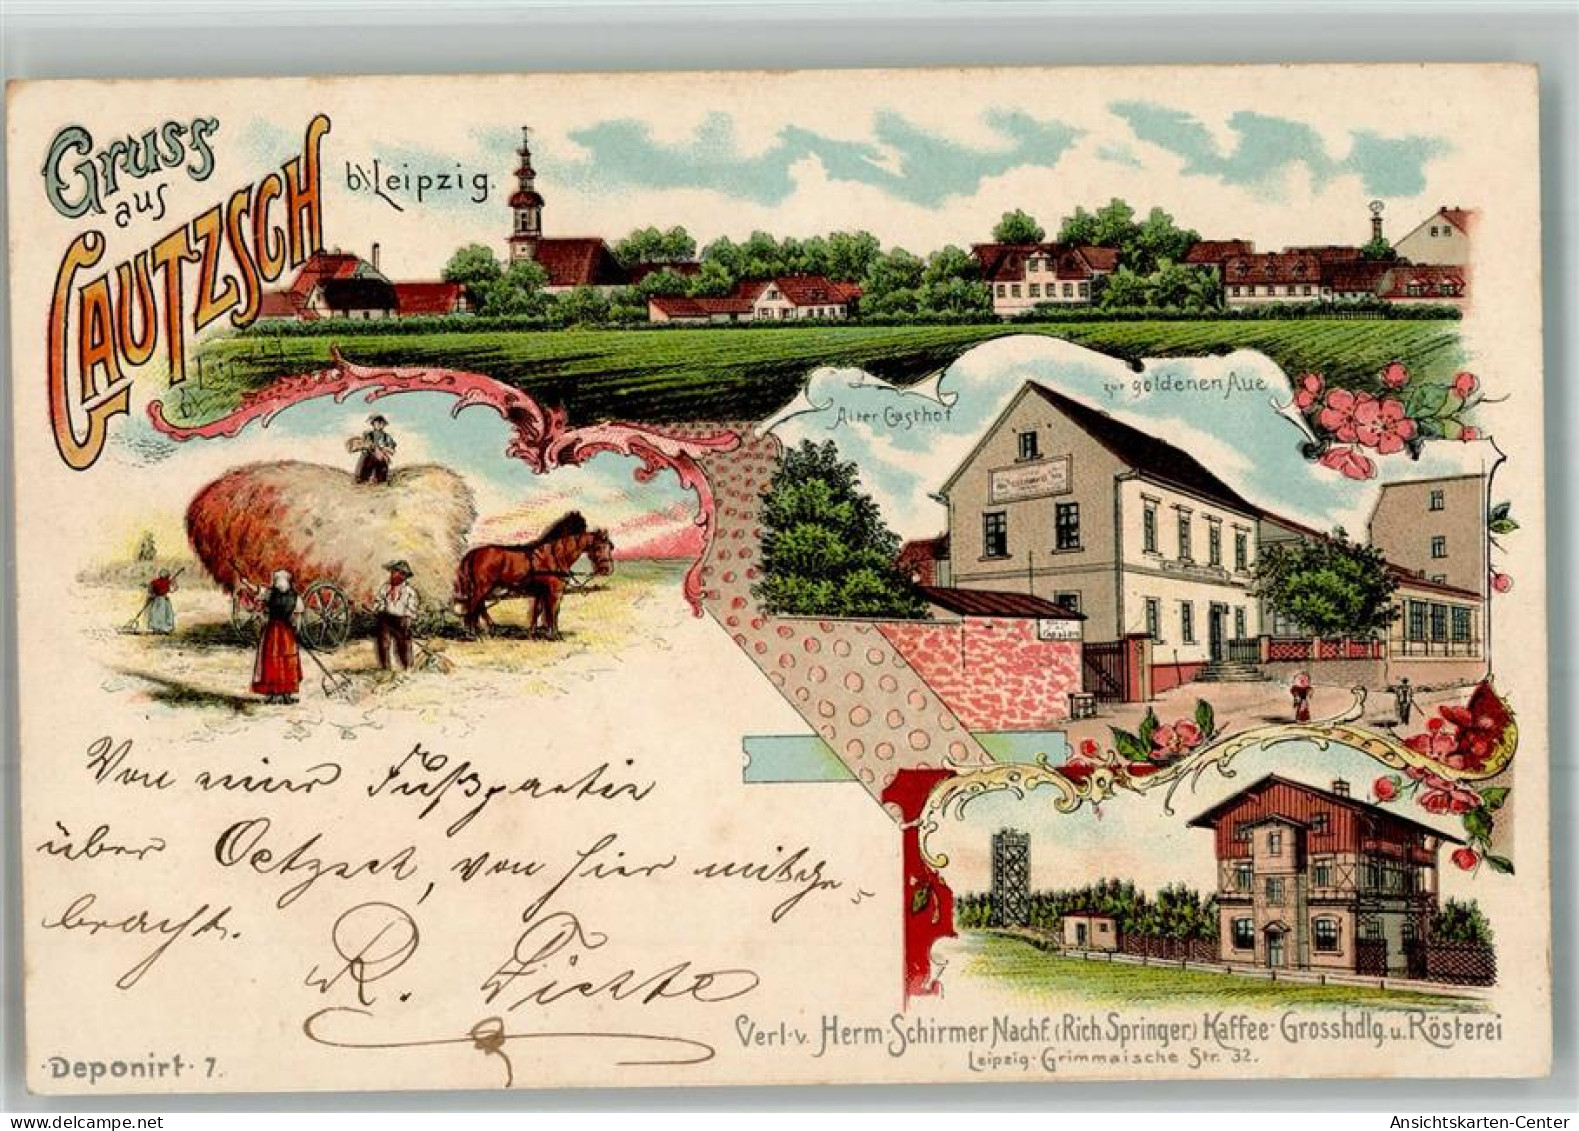 Gruss
aus
GAUTZSCH
b. Leipzig.
Alter Gasthof
zur goldenen Aue
Von einer Fußpartie
über Oetzsch, von hier mitge-
bracht.
R.
Verl. v. Herm. Schirmer Nachf. (Rich. Springer) Kaffee-Grosshdlg. u. Rösterei
Leipzig-Grimmaische Str. 32.
Deponirt 7.
delcampe.net
Ansichtskarten-Center